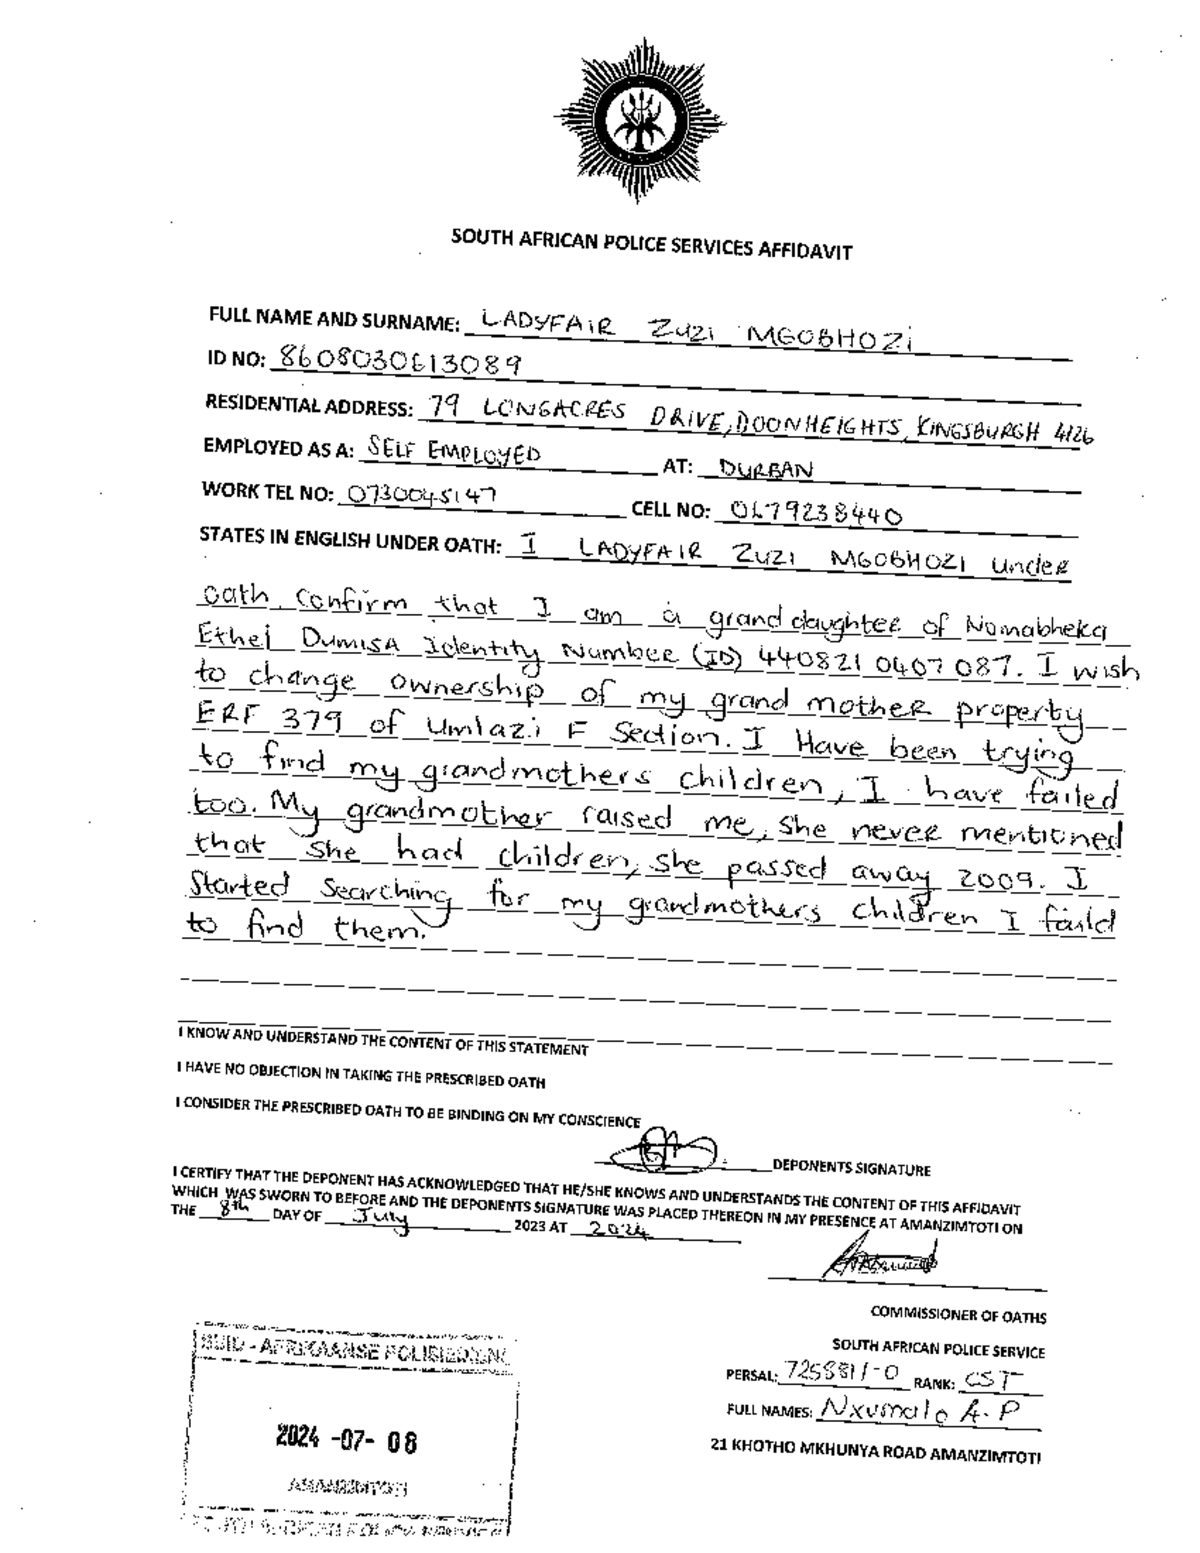 SOUTH AFRICAN POLICE SERVICES AFFIDAVIT
FULL NAME AND SURNAME: LADYFAIR ZUZI MGOBHOZI
ID NO: 8608030613089
RESIDENTIAL ADDRESS: 79 LONGACRES DRIVE, DOONHEIGHTS, KINGSBURGH 4126
EMPLOYED AS A: SELF EMPLOYED AT: DURBAN
WORK TEL NO: 0730045147 CELL NO: 0679238440
STATES IN ENGLISH UNDER OATH: I LADYFAIR ZUZI MGOBHOZI under
oath, confirm that I am a grand daughter of Nomabheka
Ethel Dumisa Identity Number (ID) 440821 0407 087. I wish
to change ownership of my grand mother property
ERF 379 of Umlazi F Section. I Have been trying
to find my grandmothers children, I have failed
too. My grandmother raised me, she never mentioned
that she had children, she passed away 2009. I
started searching for my grandmothers children I faild
to find them.
I KNOW AND UNDERSTAND THE CONTENT OF THIS STATEMENT
I HAVE NO OBJECTION IN TAKING THE PRESCRIBED OATH
I CONSIDER THE PRESCRIBED OATH TO BE BINDING ON MY CONSCIENCE
DEPONENTS SIGNATURE
I CERTIFY THAT THE DEPONENT HAS ACKNOWLEDGED THAT HE/SHE KNOWS AND UNDERSTANDS THE CONTENT OF THIS AFFIDAVIT
WHICH WAS SWORN TO BEFORE AND THE DEPONENTS SIGNATURE WAS PLACED THEREON IN MY PRESENCE AT AMANZIMTOTI ON
THE 8th DAY OF July 2023 AT 2024
COMMISSIONER OF OATHS
SOUTH AFRICAN POLICE SERVICE
PERSAL: 7258811-0 RANK: CST
FULL NAMES: Nxumalo A.P
21 KHOTHO MKHUNYA ROAD AMANZIMTOTI
SUID-AFRIKAANSE POLISIEDIENS
2024-07-08
AMANZIMTOTI
SOUTH AFRICAN POLICE SERVICE